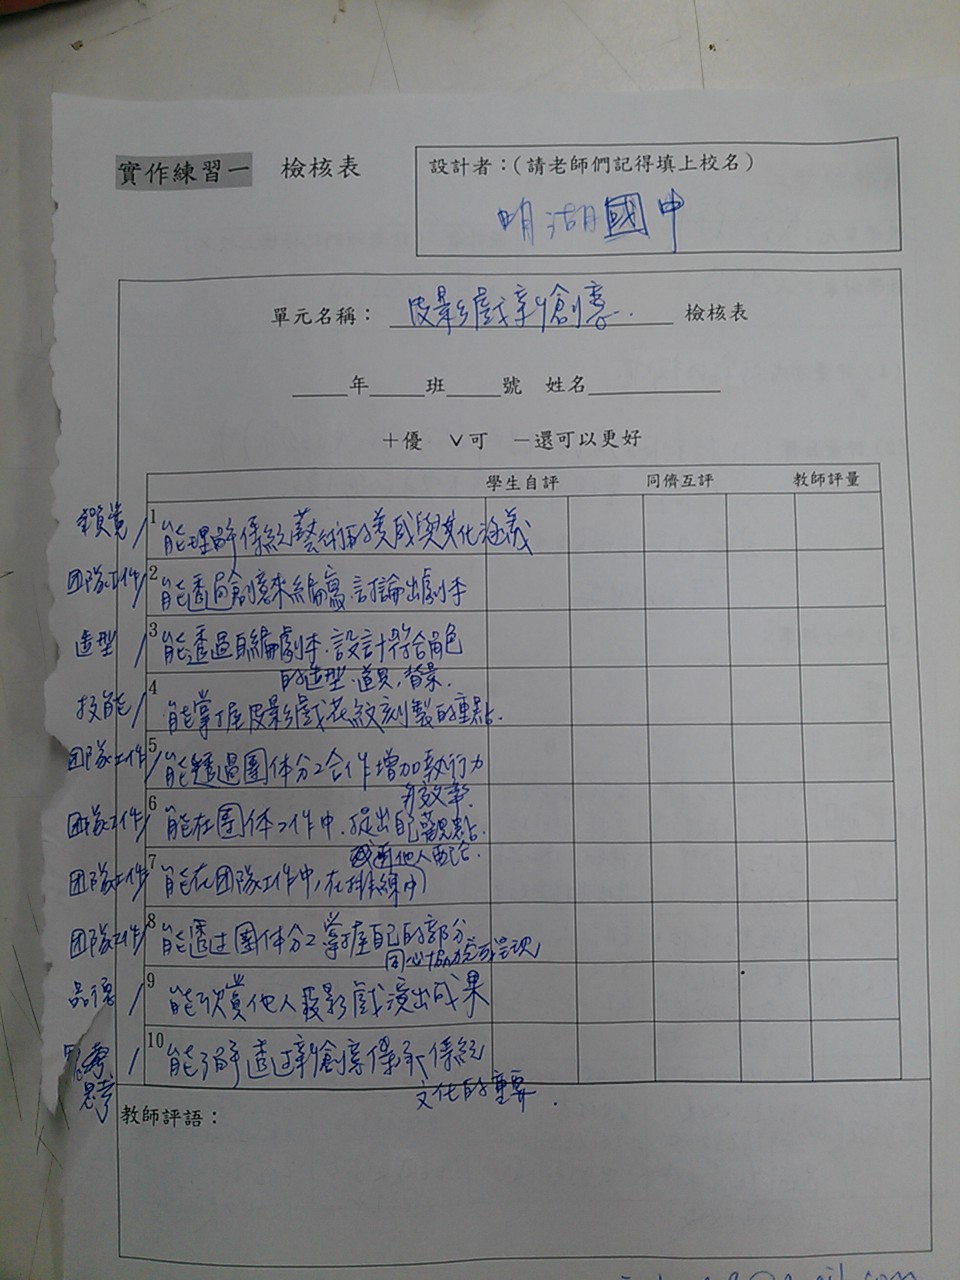 實作練習一 檢核表
設計者：(請老師們記得填上校名)
明湖國中
單元名稱： 皮影戲新創意. 檢核表
___年___班___號 姓名______
＋優 ∨可 －還可以更好
學生自評 同儕互評 教師評量
/ 1 能理解傳統藝術的美感與文化涵義
团隊工作/ 2 能透過創意來編寫.討論出劇本
造型/ 3 能透過自編劇本.設計符合角色
的造型.道具.背景.
技能/ 4 能掌握皮影戲花紋刻製的重點.
团隊工作/ 5 能透過團体分工合作增加執行力
有效率.
团隊工作/ 6 能在團体工作中.提出自己觀點.
與他人配合.
团隊工作/ 7 能在团隊工作中,在排練中
团隊工作/ 8 能透过團体分工掌握自己的部分
同心協力完成呈現
品德/ 9 能欣賞他人皮影戲演出成果
思考/ 10 能了解透过新創意傳承傳統
文化的重要.
教師評語：